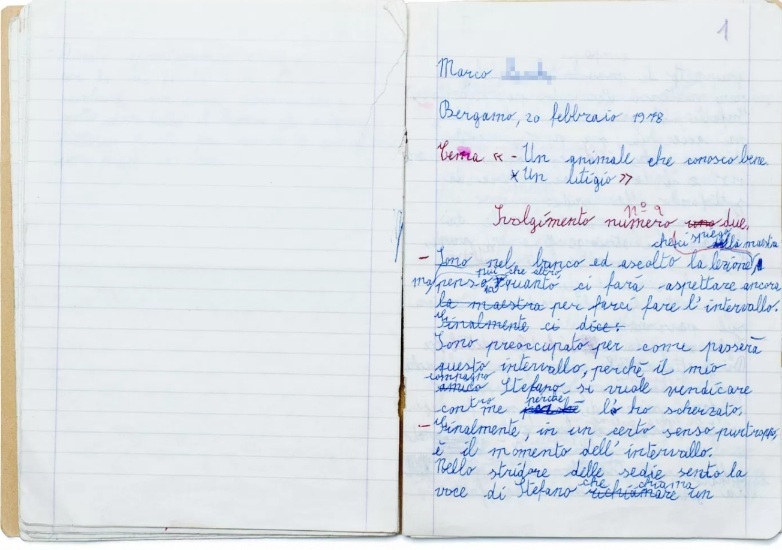 1
Marco
Bergamo, 20 febbraio 1978
Tema « - Un animale che conosco bene
x Un litigio »
n° 9
Svolgimento numero uno due.
che ci spiega la maestra
- Sono nel banco ed ascolto la lezione,
più che altro
ma penso quanto ci farà aspettare ancora
la maestra per farci fare l'intervallo.
Finalmente ci dice:
Sono preoccupato per come passerà
questo intervallo, perché il mio
compagno
amico Stefano si vuole vendicare
perché
contro me perché lo ho scherzato.
- Finalmente, in un certo senso purtroppo,
è il momento dell'intervallo.
Nello stridore delle sedie sento la
che chiama
voce di Stefano richiamare un